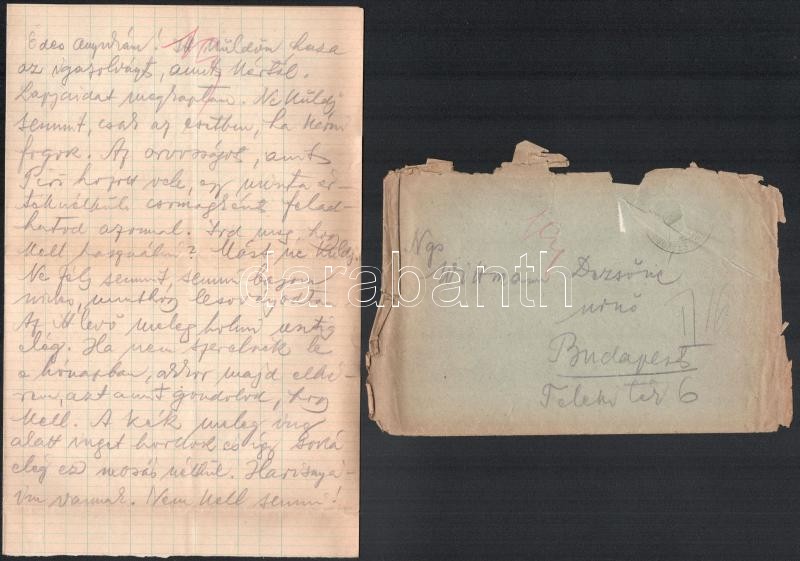 Édes anyukám! Itt küldöm haza
az igazolványt, amit kértél.
Lapjaidat megkaptam. Ne küldj
semmit, csak az esetben, ha kérni
fogok. Az orvosságot, amit
Piri hozott vele, egy minta ér-
ték nélküli csomagként felad-
hatod azonnal. Írd meg, hogy
kell használni? Mást ne küldj.
Ne félj semmit, semmi bajom
nincs, minthogy lesoványodta
Az itt levő meleg holmi untig
elég. Ha nem szerelnek le
e hónapban, akkor majd elké-
rem, azt amit gondolod, hogy
kell. A kék meleg ing
alatt inget hordok és így soká
elég ez mosás nélkül. Harisnyá-
im vannak. Nem kell semmi!
Ngs
Widmann Dezsőné
úrnő
Budapest
Teleki tér 6
darabanth